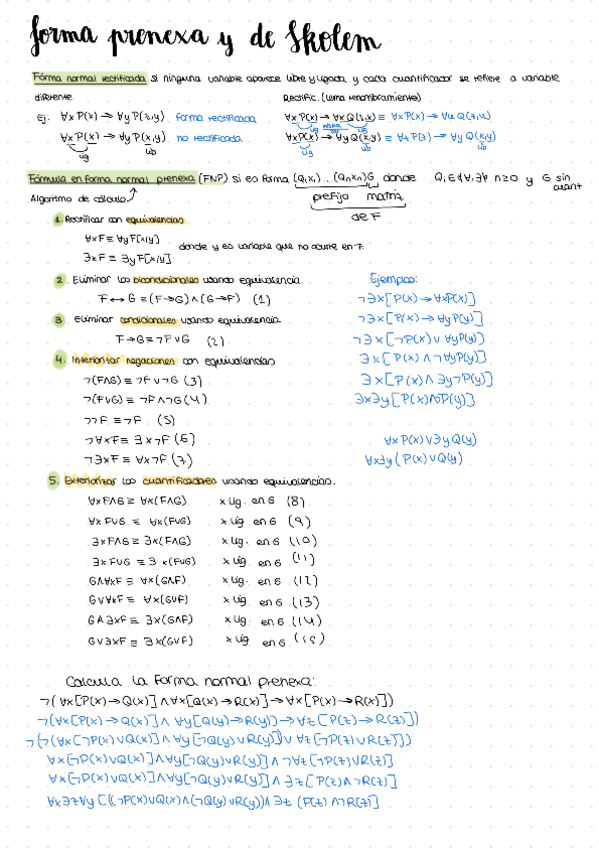 forma prenexa y de Skolem
Fórma normal rectificada si ninguna variable aparece libre y ligada y cada cuantificador se refiere a variable
diferente. Rectific. (lema renombramiento)
Ej: ∀x P(x) → ∀y P(z,y) forma rectificada ∀x P(x) → ∀x Q(z,x) ≡ ∀x P(x) → ∀u Q(z,u)
∀x P(x) → ∀y P(x,y) no rectificada ∀x P(x) → ∀y Q(x,y) ≡ ∀z P(z) → ∀y Q(x,y)
lig lib lig lib lib
Fórmula en forma normal prenexa (FNP) si es forma (Q₁x₁)... (Qnxn)G donde Qi∈{∀,∃} n≥0 y G sin
cuant
Algoritmo de cálculo prefijo matriz
de F
1. Rectificar con equivalencias
∀xF ≡ ∀yF[x/y]
∃xF ≡ ∃yF[x/y] donde y es variable que no ocurre en F.
2. Eliminar los bicondicionales usando equivalencia.
F↔G ≡ (F→G)∧(G→F) (1)
3. Eliminar condicionales usando equivalencia
F→G ≡ ¬F∨G (2)
4. Interiorizar negaciones con equivalencias
¬(F∧G) ≡ ¬F∨¬G (3)
¬(F∨G) ≡ ¬F∧¬G (4)
¬¬F ≡ ¬F (5)
¬∀xF ≡ ∃x¬F (6)
¬∃xF ≡ ∀x¬F (7)
Ejemplos:
¬∃x[P(x)→∀xP(x)]
¬∃x[P(x)→∀yP(y)]
¬∃x[¬P(x)∨∀yP(y)]
∃x[P(x)∧¬∀yP(y)]
∃x[P(x)∧∃y¬P(y)]
∃x∃y[P(x)∧¬P(y)]
∀xP(x)∨∃yQ(y)
∀x∃y(P(x)∨Q(y)
5. Exteriorizar los cuantificadores usando equivalencias.
∀xF∧G ≡ ∀x(F∧G) x lig. en G (8)
∀xF∨G ≡ ∀x(F∨G) x lig. en G (9)
∃xF∧G ≡ ∃x(F∧G) x lig. en G (10)
∃xF∨G ≡ ∃x(F∨G) x lig. en G (11)
G∧∀xF ≡ ∀x(G∧F) x lig. en G (12)
G∨∀xF ≡ ∀x(G∨F) x lig. en G (13)
G∧∃xF ≡ ∃x(G∧F) x lig. en G (14)
G∨∃xF ≡ ∃x(G∨F) x lig. en G (15)
Calcula la forma normal prenexa:
¬(∀x[P(x)→Q(x)]∧∀x[Q(x)→R(x)]→∀x[P(x)→R(x)])
¬(∀x[P(x)→Q(x)]∧∀y[Q(y)→R(y)]→∀z[P(z)→R(z)])
¬(¬(∀x[¬P(x)∨Q(x)]∧∀y[¬Q(y)∨R(y)])∨∀z[¬P(z)∨R(z)])
∀x[¬P(x)∨Q(x)]∧∀y[¬Q(y)∨R(y)]∧¬∀z[¬P(z)∨R(z)]
∀x[¬P(x)∨Q(x)]∧∀y[¬Q(y)∨R(y)]∧∃z[P(z)∧¬R(z)]
∀x∃z∀y[((¬P(x)∨Q(x)∧(¬Q(y)∨R(y))∧∃z (P(z)∧¬R(z)]